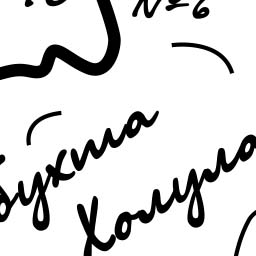 №6
бухта
Холула